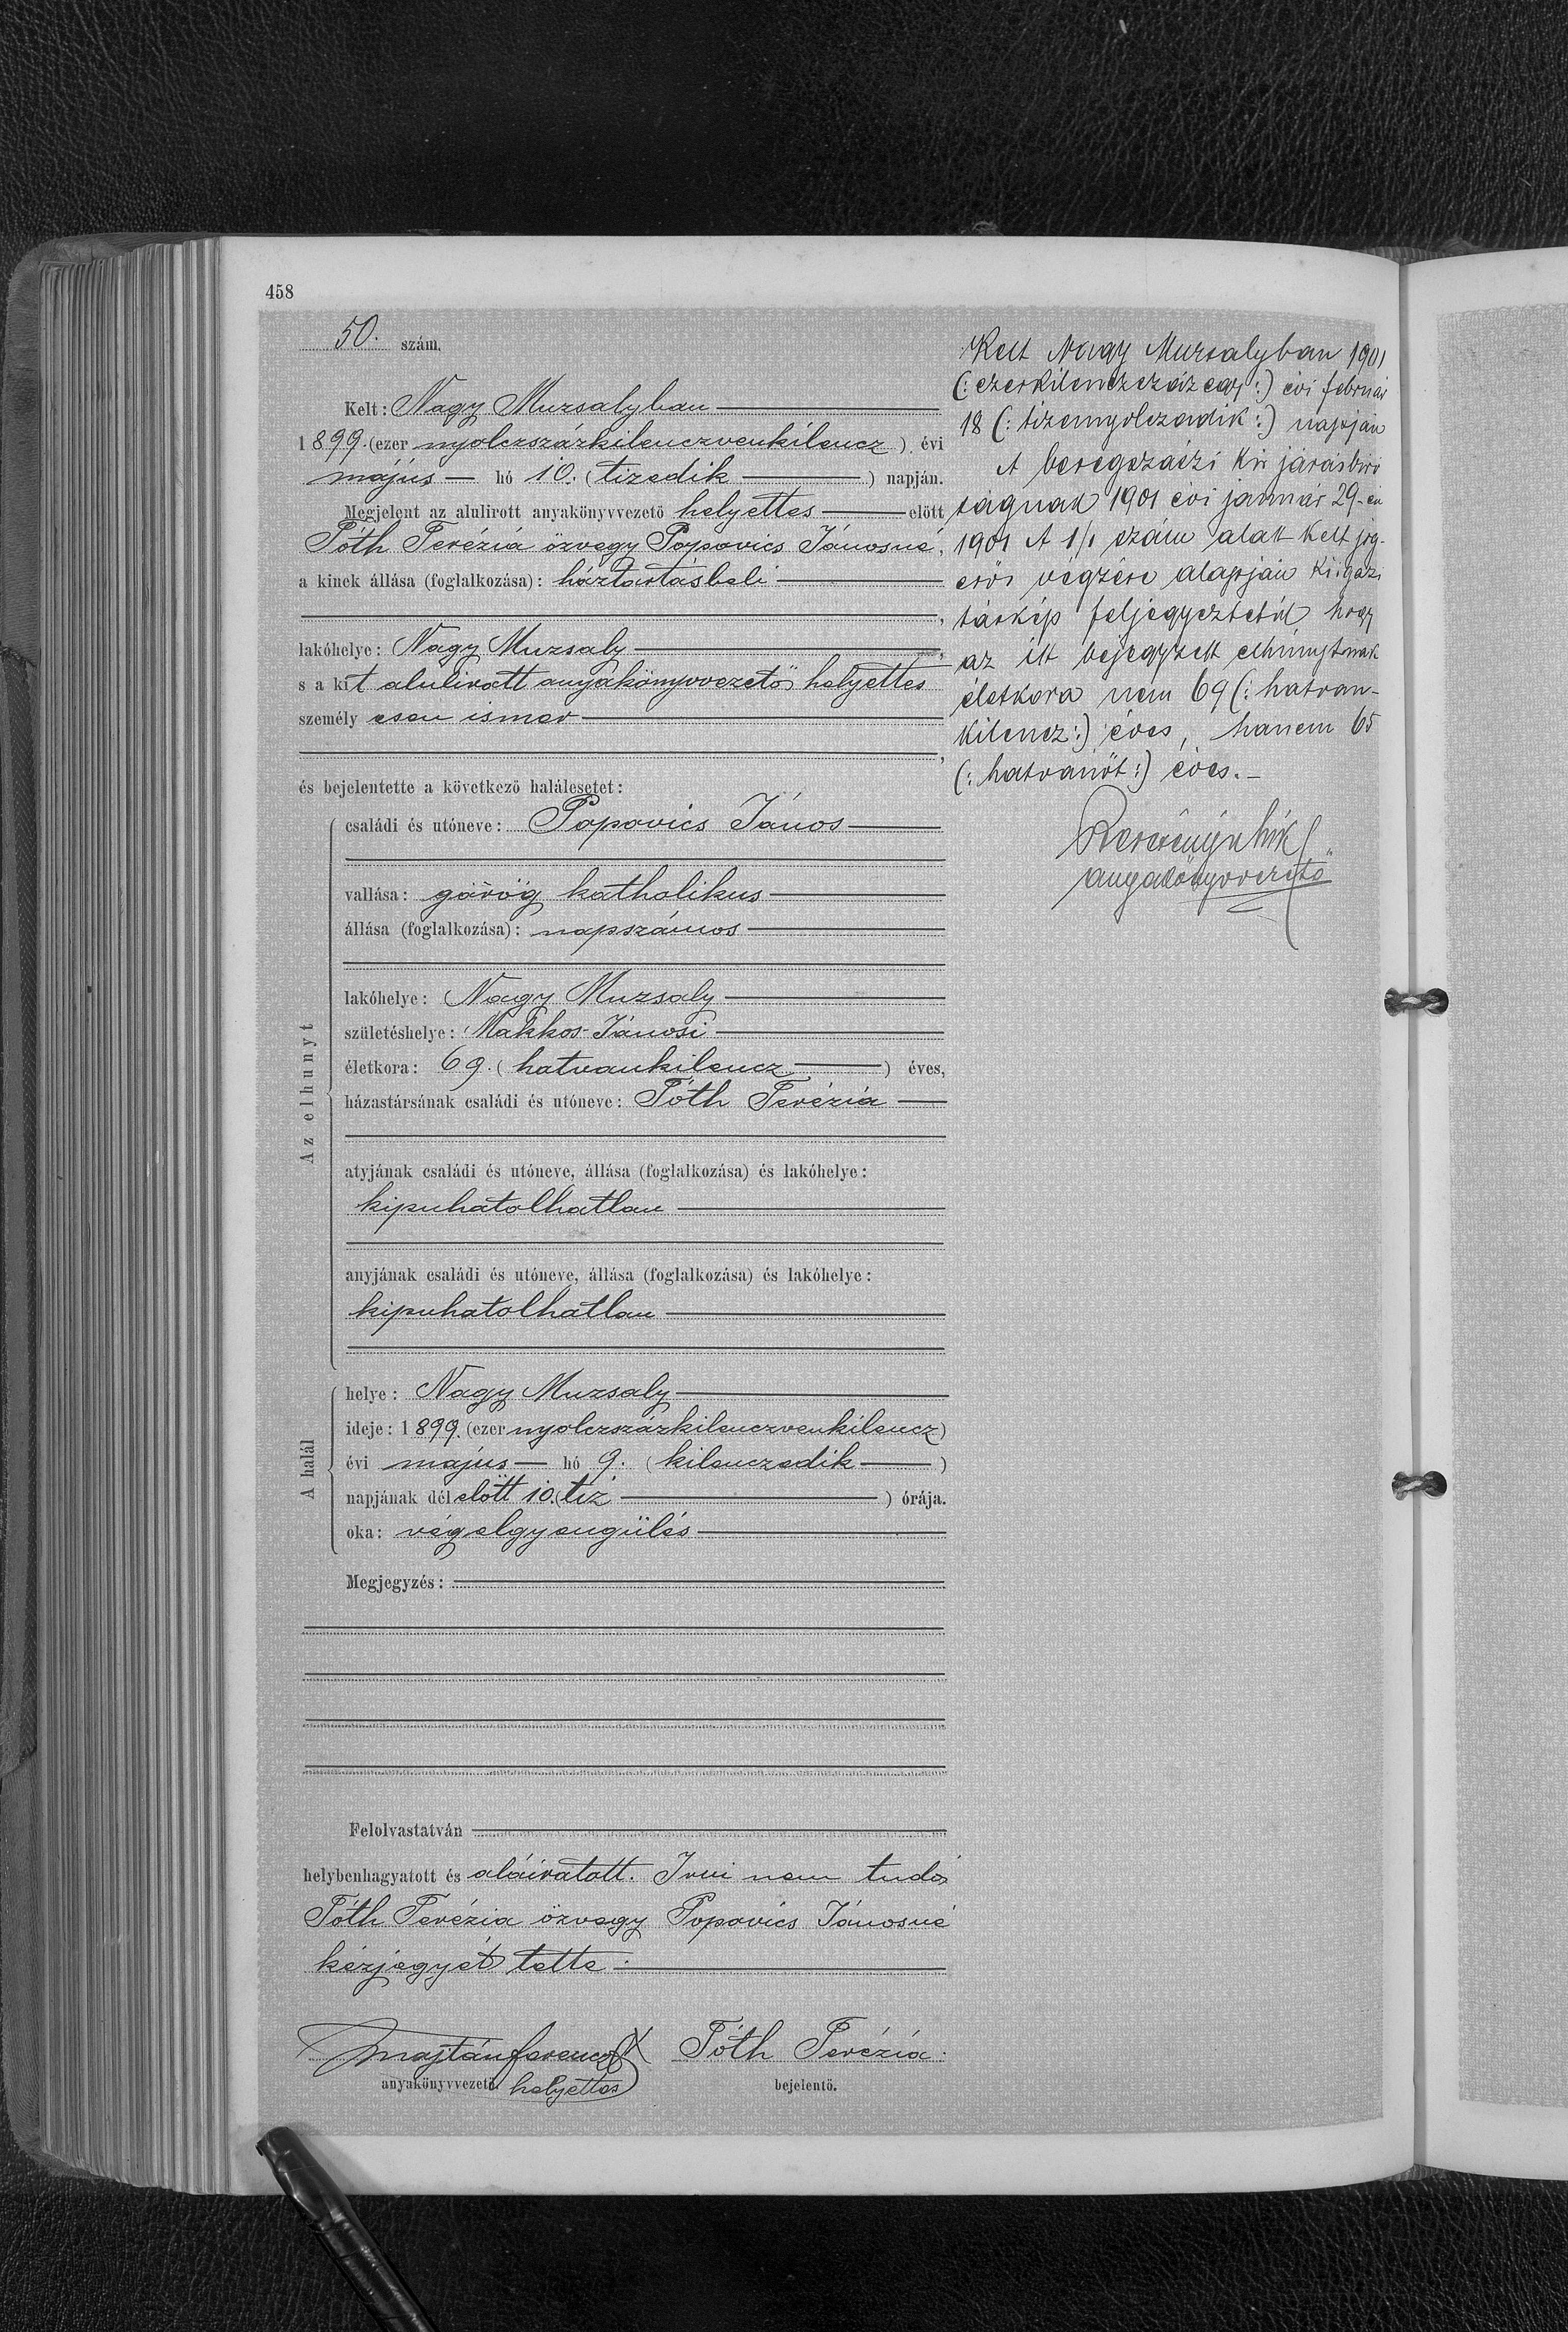 458
50. szám.
Kelt: Nagy Muzsalyban
1899. (ezer nyolczszázkilenczvenkilencz) évi
május hó 10. (tizedik) napján.
Megjelent az alulirott anyakönyvvezető helyettes előtt
Tóth Terézia özvegy Popovics Jánosné,
a kinek állása (foglalkozása): háztartásbeli
lakóhelye: Nagy Muzsaly,
s a kit alulirott anyakönyvvezető helyettes
személyesen ismer
és bejelentette a következő halálesetet:
Az elhunyt
családi és utóneve: Popovics János
vallása: görög katholikus
állása (foglalkozása): napszámos
lakóhelye: Nagy Muzsaly
születéshelye: Makkos-Jánosi
életkora: 69. (hatvankilencz) éves,
házastársának családi és utóneve: Tóth Terézia
atyjának családi és utóneve, állása (foglalkozása) és lakóhelye:
kipuhatolhatlan
anyjának családi és utóneve, állása (foglalkozása) és lakóhelye:
kipuhatolhatlan
A halál
helye: Nagy Muzsaly
ideje: 1899. (ezer nyolczszázkilenczvenkilencz)
évi május hó 9. (kilenczedik)
napjának délelőtt 10. (tiz) órája.
oka: végelgyengülés
Megjegyzés:
Felolvastatván
helybenhagyatott és aláiratott. Irni nem tudó
Tóth Terézia özvegy Popovics Jánosné
kézjegyét tette.
Majtán Ferencz X Tóth Terézia.
anyakönyvvezető helyettes bejelentő.
Kelt Nagy Muzsalyban 1901
(: ezerkilenczszázegy :) évi február
18 (: tizennyolczadik :) napján
A beregszászi kir járásbiró
ságnak 1901 évi január 29-én
1901 A 1/1 szám alatt kelt jog-
erős végzése alapján kiigazi
táskép feljegyeztetik hogy
az itt bejegyzett elhunytnak
életkora nem 69 (: hatvan-
kilencz :) éves, hanem 65
(: hatvanöt :) éves.-
anyakönyvvezető